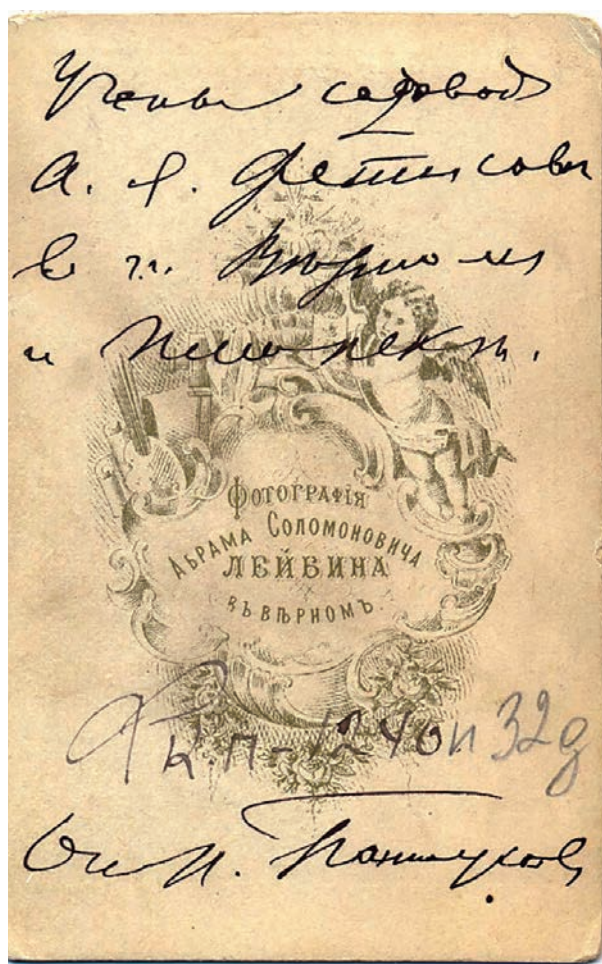 Ученый садовод
А. Фетисов
в г. Верном
и Пишпек
ФОТОГРАФІЯ
АБРАМА СОЛОМОНОВИЧА
ЛЕЙБИНА
ВЪ ВѢРНОМЪ.
КП-1240 И 32 д